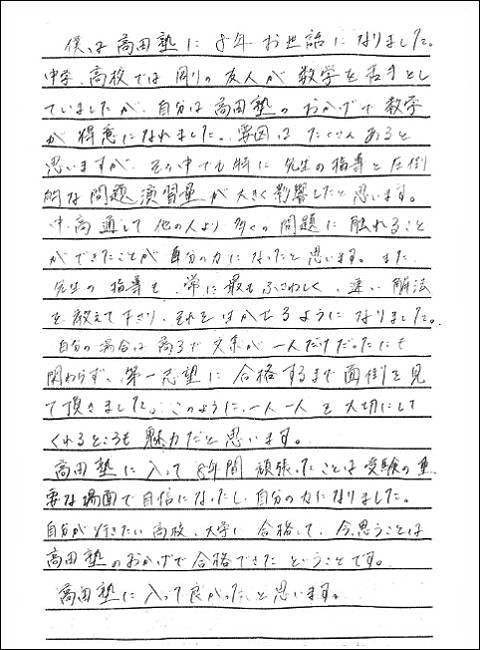 僕は高田塾に8年お世話になりました。
中学、高校では周りの友人が数学を苦手とし
ていましたが、自分は高田塾のおかげで数学
が得意になれました。要因はたくさんあると
思いますが、その中でも特に先生の指導と圧倒
的な問題演習量が大きく影響したと思います。
中・高通して他の人より多くの問題に触れること
ができたことが自分の力になったと思います。また
先生の指導も、常に最もふさわしく、速い解法
を教えて下さり、それを生かせるようになりました。
自分の場合は高3で文系が一人だけだったにも
関わらず、第一志望に合格するまで面倒を見
て頂きました。このように、一人一人を大切にして
くれるところも魅力だと思います。
高田塾に入って8年間頑張ったことは受験の重
要な場面で自信になったし、自分の力になりました。
自分が行きたい高校、大学に合格して、今思うことは
高田塾のおかげで合格できたということです。
高田塾に入って良かったと思います。